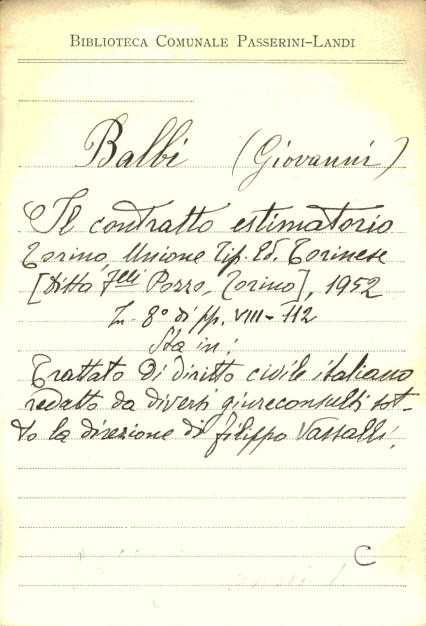 BIBLIOTECA COMUNALE PASSERINI-LANDI
Balbi (Giovanni)
Il contratto estimatorio
Torino, Unione Tip. Ed. Torinese
[Ditta F.elli Pozzo, Torino], 1952
In 8° di pp. VIII-112
Sta in:
Trattato di diritto civile italiano
redatto da diversi giureconsulti sot-
to la direzione di Filippo Vassalli.
C